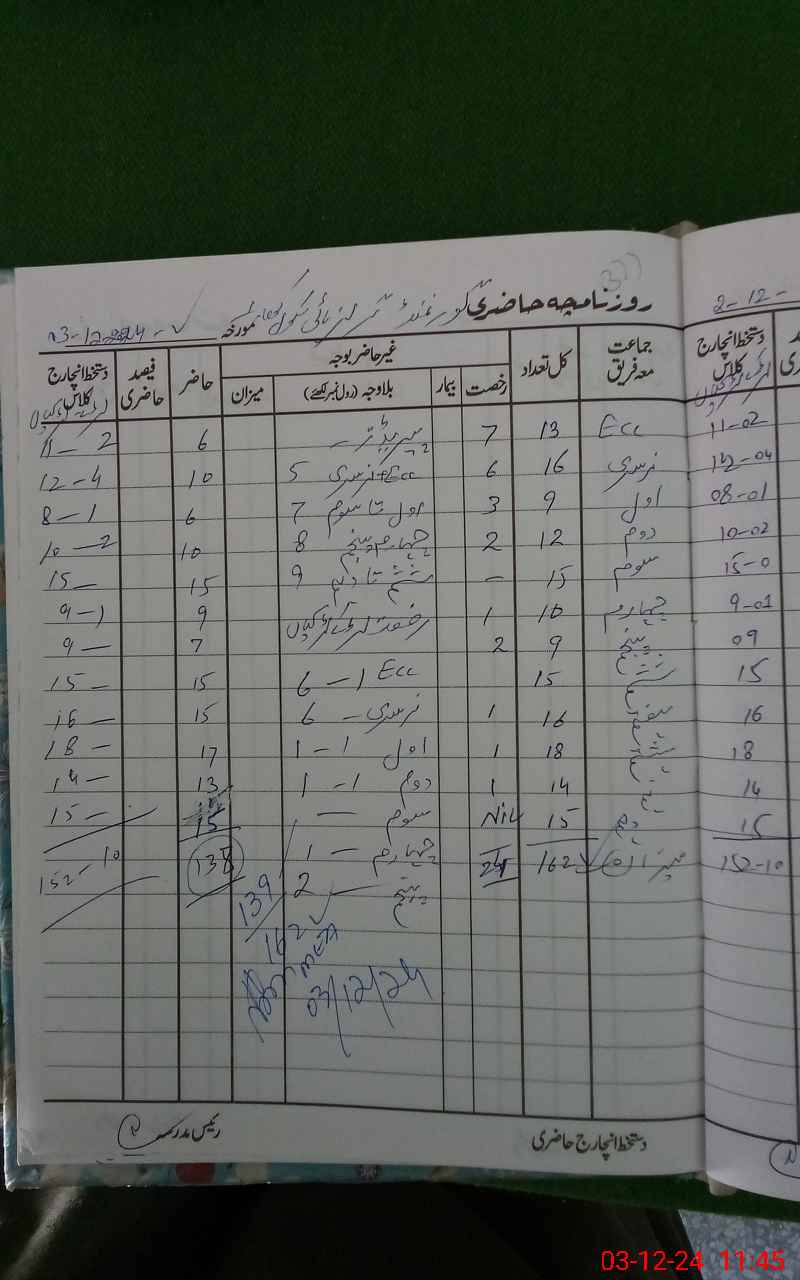 روزنامچہ حاضری گورنمنٹ گرلز ہائی سکول
مورخہ 03-12-2024
2-12-
جماعت معہ فریق کل تعداد غیر حاضر بوجہ حاضر فیصد حاضری دستخط انچارج کلاس
رخصت بیمار بلاوجہ (رول نمبر لکھئے) میزان
دستخط انچارج کلاس
11-02 Ecc 13 7 6 11-2
14-04 نرسری 16 6 Ecc+نرسری 5 10 12-4
08-01 اول 9 3 اول تا سوم 7 6 8-1
10-02 دوم 12 2 چہارم پنجم 8 10 10-2
15-0 سوم 15 - ششم تا دہم 9 15 15-
9-01 چہارم 10 1 9 9-1
09 پنجم 9 2 7 9-
15 ششم 15 Ecc 1-6 15 15-
16 ہفتم 16 1 نرسری - 6 15 16-
18 ہشتم 18 1 اول 1-1 17 18-
14 نہم 14 1 دوم 1-1 13 14-
15 دہم 15 Nil سوم - 15 15-
152-10 میزان 162 24 چہارم - 1 138 152-10
پنجم - 2
139
162
03/12/24
دستخط انچارج حاضری
رئیس مدرسہ
03-12-24 11:45